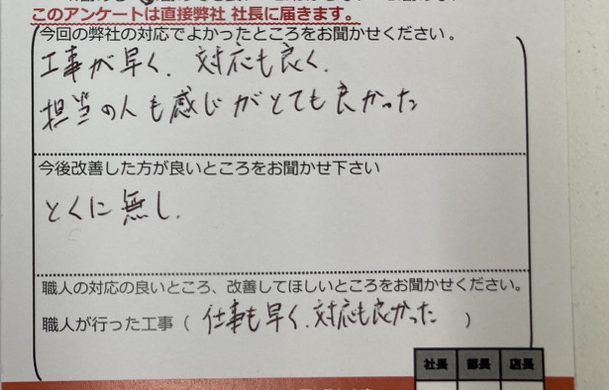 このアンケートは直接弊社 社長に届きます。
今回の弊社の対応でよかったところをお聞かせください。
工事が早く、対応も良く、
担当の人も感じがとても良かった
今後改善した方が良いところをお聞かせ下さい
とくに無し、
職人の対応の良いところ、改善してほしいところをお聞かせください。
職人が行った工事（ 仕事も早く、対応も良かった ）
社長 部長 店長